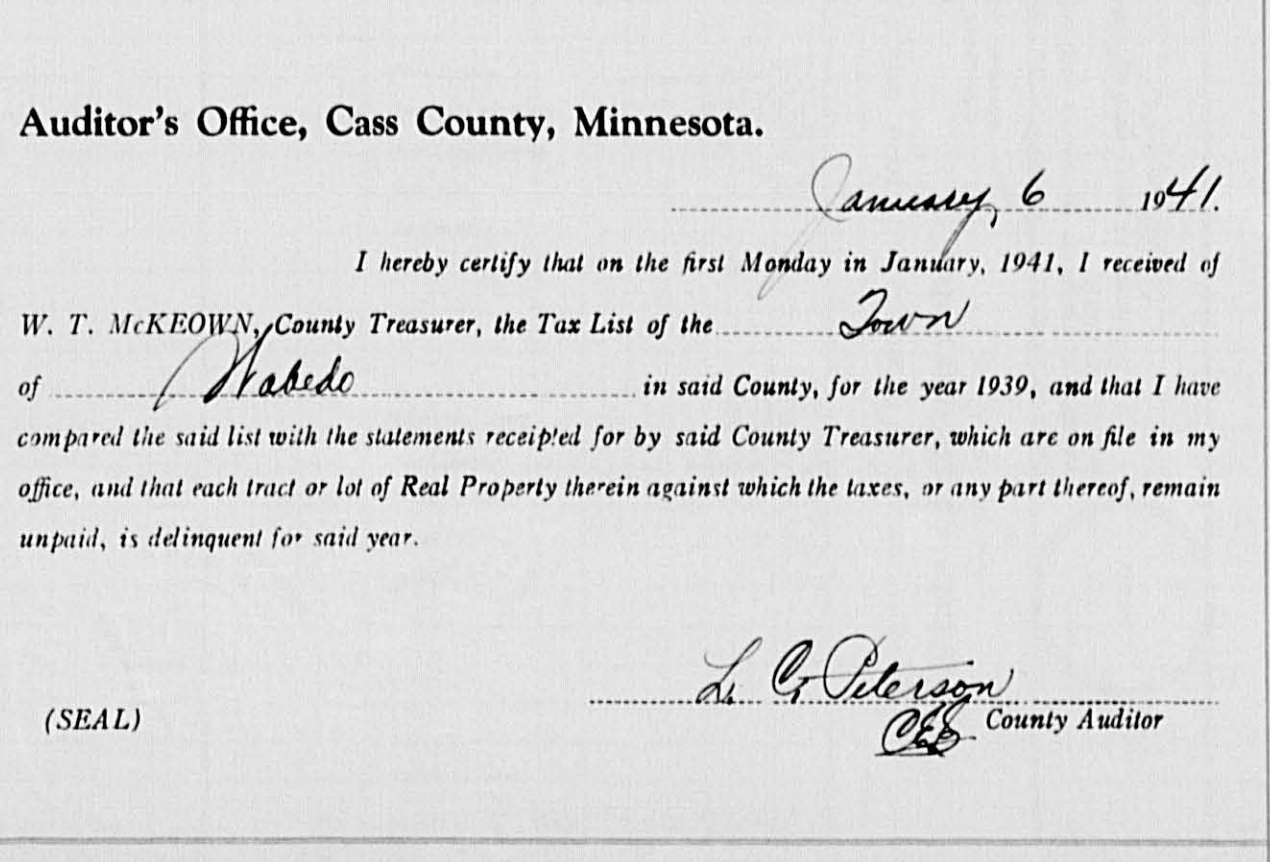 Auditor's Office, Cass County, Minnesota.
January, 6 1941.
I hereby certify that on the first Monday in January, 1941, I received of
W. T. McKEOWN, County Treasurer, the Tax List of the Town
of Wabedo in said County, for the year 1939, and that I have
compared the said list with the statements receipted for by said County Treasurer, which are on file in my
office, and that each tract or lot of Real Property therein against which the taxes, or any part thereof, remain
unpaid, is delinquent for said year.
L. C. Peterson
(SEAL) County Auditor